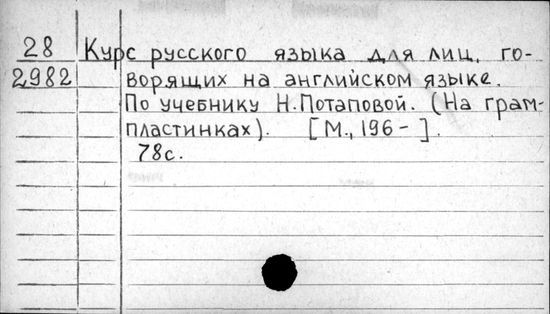 28
2982
Курс русского языка для лиц, го-
ворящих на английском языке.
По учебнику Н.Потаповой. (На грам-
пластинках). [М., 196- ].
78с.